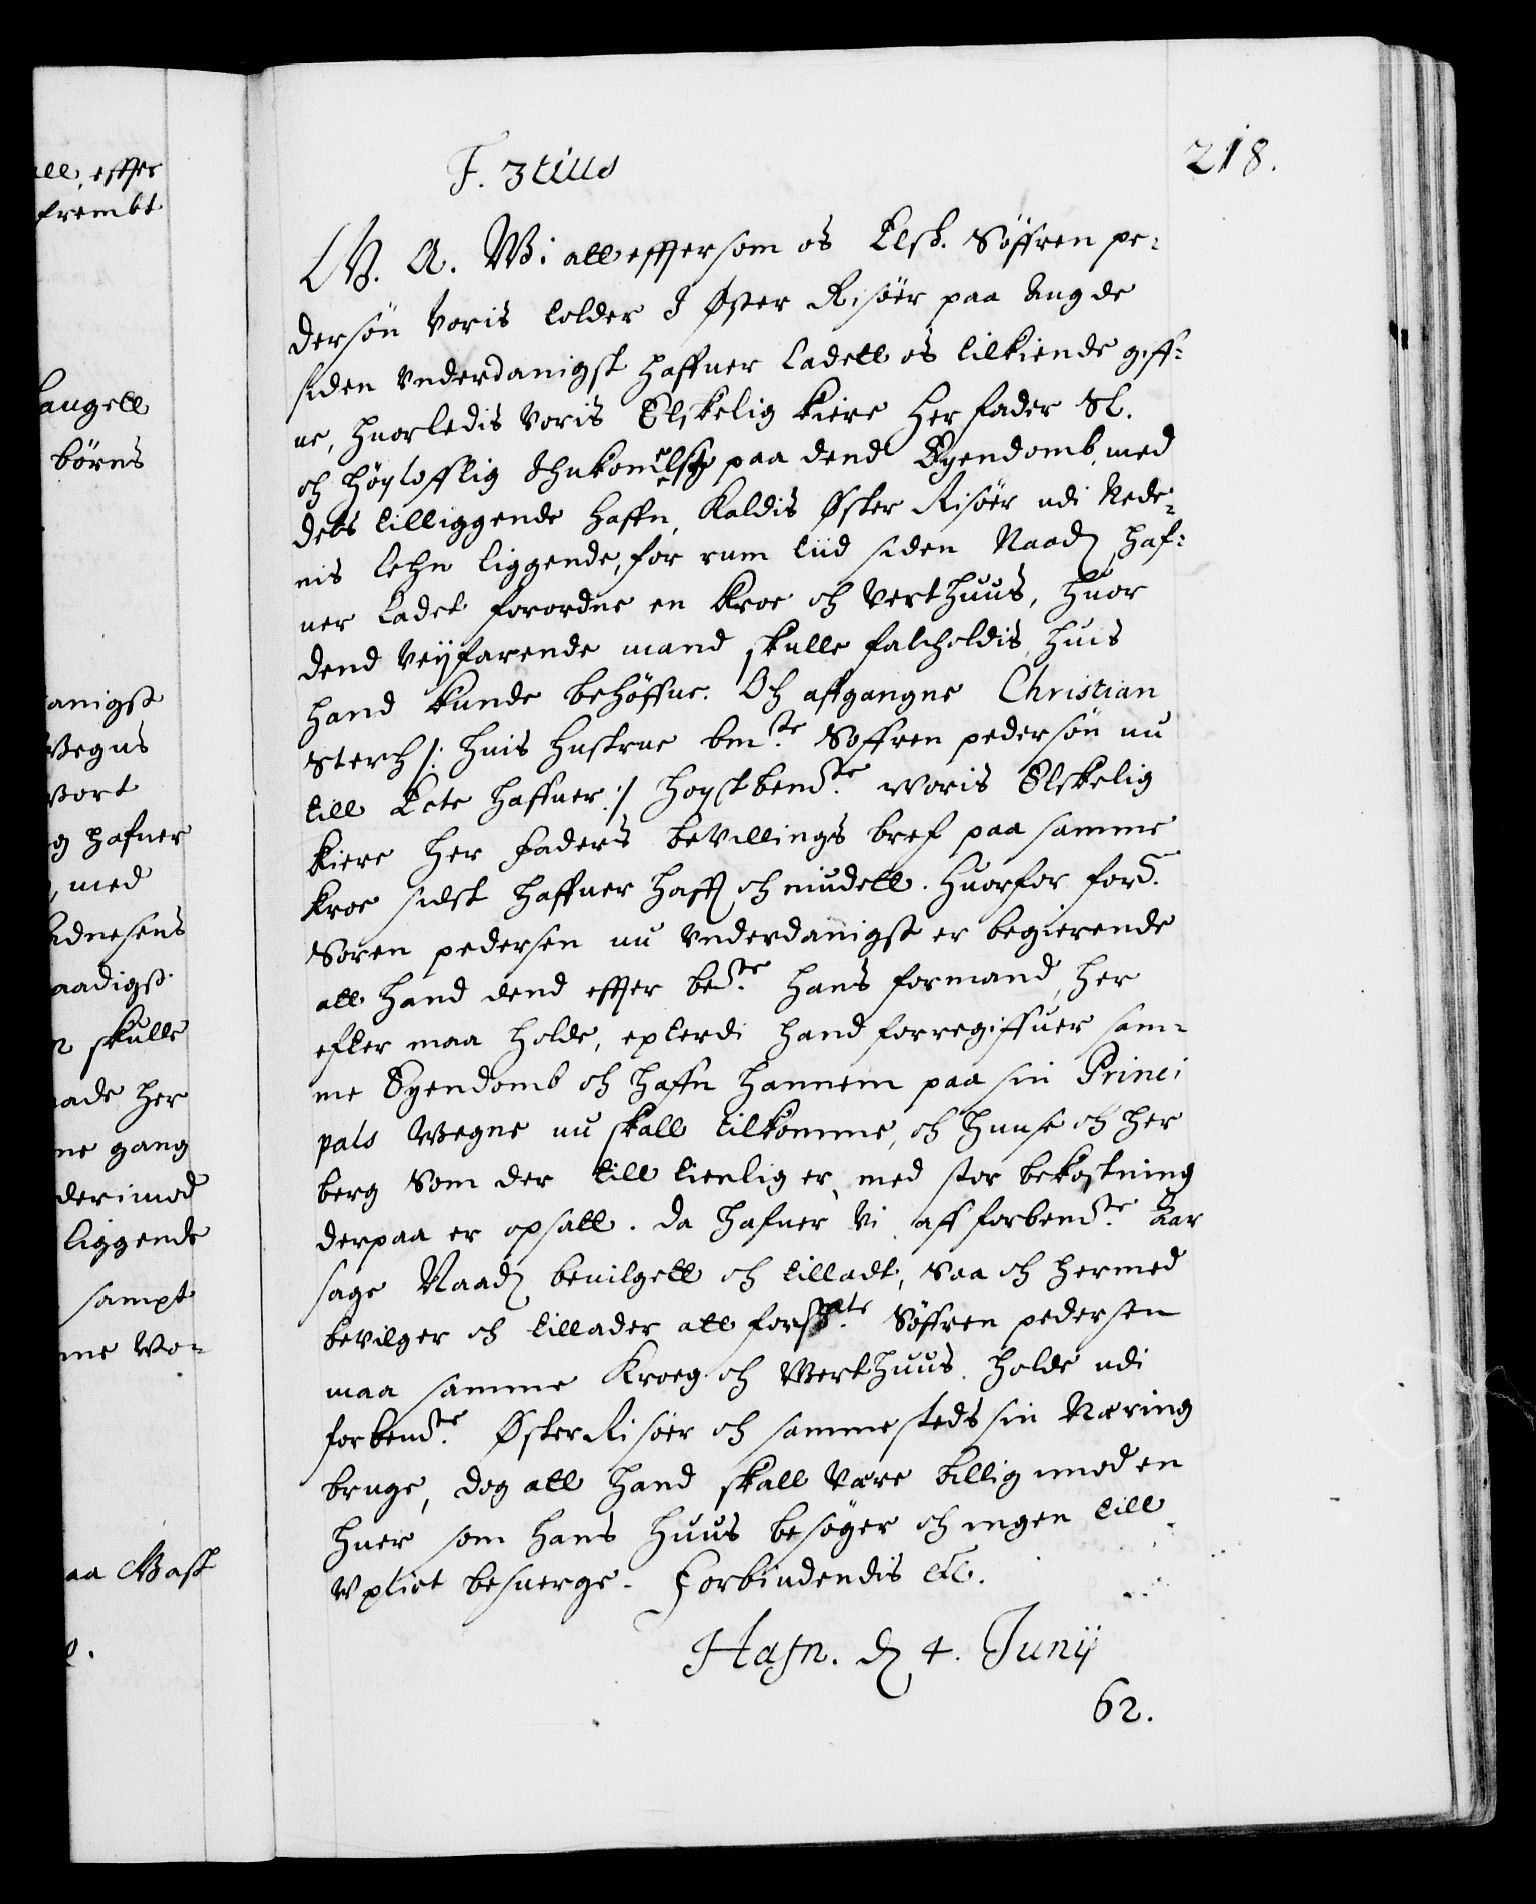 218.
F. 3tius
W. A. Wi att effersom os Elsk. Söffren pe-
dersön voris tolder I Øster Risöer paa Augde
siden vnderdanigst haffuer ladett os tilkiende giff-
ue, huorledis voris Elskelig kiere Her fader Sl.
och höylofflig Ihukommelse paa dend Eyendomb, med
dets tilliggende haffn, kaldis Øster Risöer udi Nede-
nis lehn liggende, for rum tiid siden Naad. haf-
uer ladet forordne en kroe och verthuus, huor
dend veyfarende mand skulle falcholdis, huis
hand kunde behöffue. Och affgangne Christian
Sterch /: huis hustrue bemte. Soffren pedersön nu
till Ecte haffuer :/ hoystbemte. woris Elskelig
kiere Her faders bevillings bref paa samme
kroe sidst haffuer hafft och niudett. Huorfor ford.
Soren pedersen nu vnderdanigst er begierende
att hand dend effter bete. hans formand, her
efter maa holde, epterdi hand forregiffuer sam-
me Eyendomb och haffn hannem paa sin Princi
pals Wegne nu skall tilkomme, och huuse och her
berg som der till tienlig er, med stor bekostning
derpaa er opsatt. Da hafuer Vi aff forbemte. Aar
sage Naad. beuilgett och tilladt, saa och hermed
bevilger och tillader att forschte. Söffren pedersen
maa samme Kroeg och Werthuus holde udi
forbemte. Øster Risöer och sammesteds sin Næring
bruge, dog att hand skall være billig imod en
huer som hans huus besöger och ingen till
vplict besuerge. Forbindendis etc.
Hafn. d. 4. Junij
62.
att, effter
frembt
langett
börns
anigst
Wegns
vort
g hafuer
, med
adnesens
aadigst
n skulle
ade her
ne gang
derimod
liggende
sampt
me vo-
aa Bast